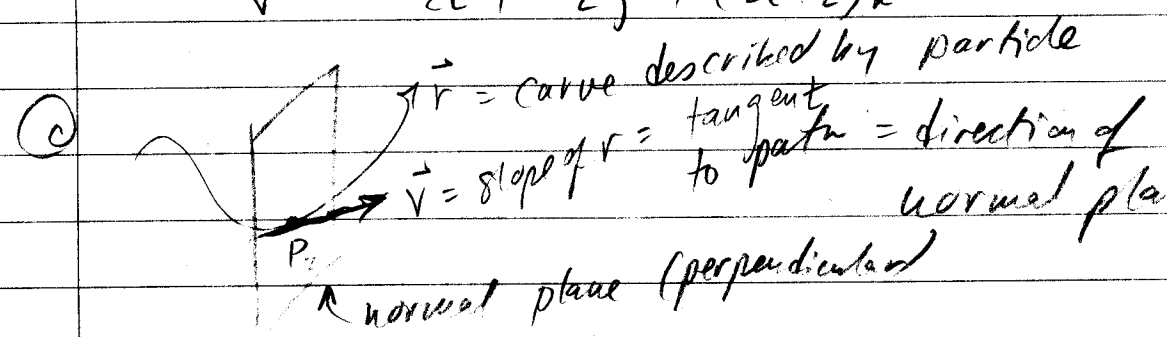 (c)
r = curve described by particle
v = slope of r = tangent to path = direction of
normal pla
P
normal plane (perpendicular)